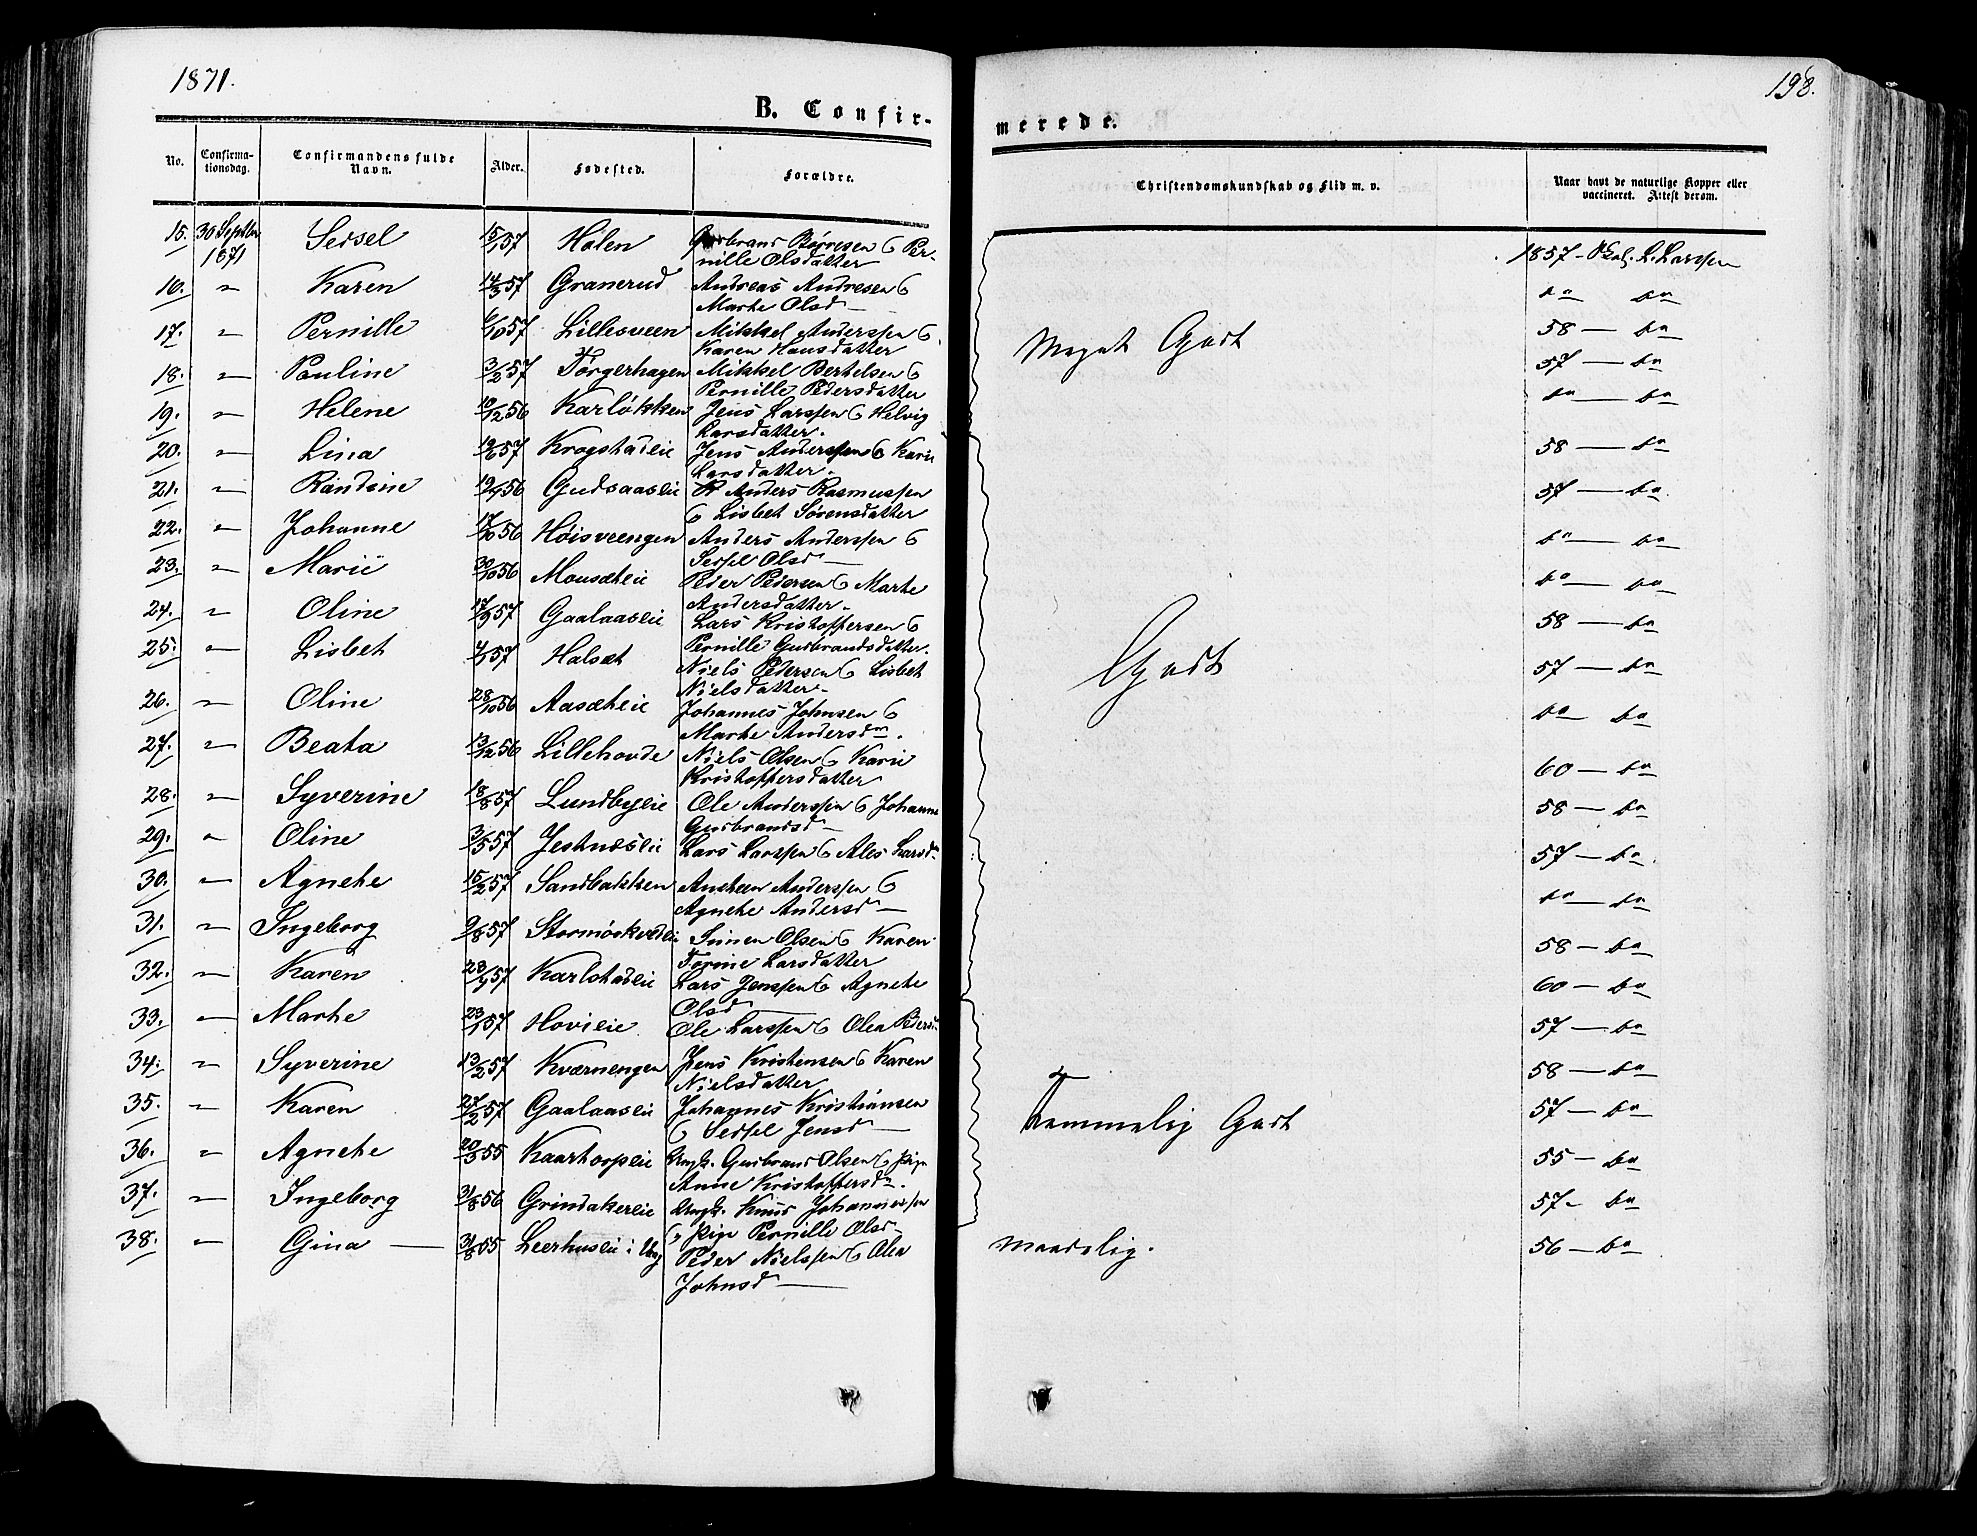 1871.
198.
B. Confir-
merede.
No.
Confirma-
tionsdag.
Confirmandens fulde
Navn.
Alder.
Fødested.
Forældre.
Christendomskundskab og Flid m. v.
Naar havt de naturlige Kopper eller
vaccineret. Attest derom.
15. 30 Septbr 1871 Sidsel 15/1 57 Holen Gudbrand Børresen & Per-
nille Olsdatter 1857 - L. Larssen
16. " Karen 14/3 57 Granerud Andreas Andresen &
Marthe Olsd do do
17. " Pernille 6/10 57 Lillesveen Mikkel Anderssen &
Karen Hansdatter 58 - do
18. " Pauline 3/2 57 Torgerhagen Mikkel Bertelsen &
Pernille Pedersdatter 57 - do
19. " Helene 10/12 56 Karløkken Jens Larssen & Helvig
Larsdatter. do - do
20. " Lina 19/6 57 Krogstadeie Jens Anderssen & Karie
Larsdatter. 58 - do
21. " Randine 19/9 56 Gudsaaseie Anders Rasmussen
& Lisbet Sørensdatter 57 - do
22. " Johanne 17/10 56 Høisveengen Anders Anderssen &
Sidsel Olsd do - do
23. " Marie 30/10 56 Mousæteie Peder Pedersen & Marthe
Andersdatter. do - do
24. " Oline 17/9 57 Gaalaaseie Lars Kristoffersen &
Pernille Gudbrandsdatter. 58 - do
25. " Lisbet 4/7 57 Halsæt Niels Pedersen & Lisbet
Nielsdatter 57 - do
26. " Oline 28/10 56 Aasætheie Johannes Johnsen &
Marthe Andersdr. do do
27. " Beata 13/12 56 Lillehovde Niels Olsen & Karie
Kristoffersdatter 60 - do
28. " Syverine 18/8 57 Lundbyeie Ole Anderssen & Johanne
Gudbrandsd 58 - do
29. " Oline 3/5 57 Jestnæseie Lars Larssen & Ales Larsdr 57 - do
30. " Agnethe 15/2 57 Sandbakken Andreas Anderssen &
Agnethe Andersd do - do
31. " Ingeborg 9/8 57 Simen Olsen & Karen
Torine Larsdatter 58 - do
32. " Karen 28/9 57 Karlstadeie Lars Jenssen & Agnethe
Olsd 60 - do
33. " Marthe 23/1 57 Hovieie Ole Larssen & Olea Pedersd 57 - do
34. " Syverine 13/2 57 Kværnengen Jens Kristensen & Karen
Nielsdatter 58 - do
35. " Karen 27/2 57 Gaalaaseie Johannes Kristiansen
& Sidsel Jensd 57 - do
36. " Agnethe 20/3 55 Kaarthorpeie Ungk. Gudbrand Olsen & Pige
Anne Kristoffersdr. 55 - do
37. " Ingeborg 31/8 56 Grindakereie Ungk. Knud Johannessen
& Pige Pernille Olsd 57 - do
38. " Gina 31/8 55 Leerhuseie i Peder Nielssen & Olea
Johnsd 56 - do
Meget Godt
Godt
Temmelig Godt
Maadelig.